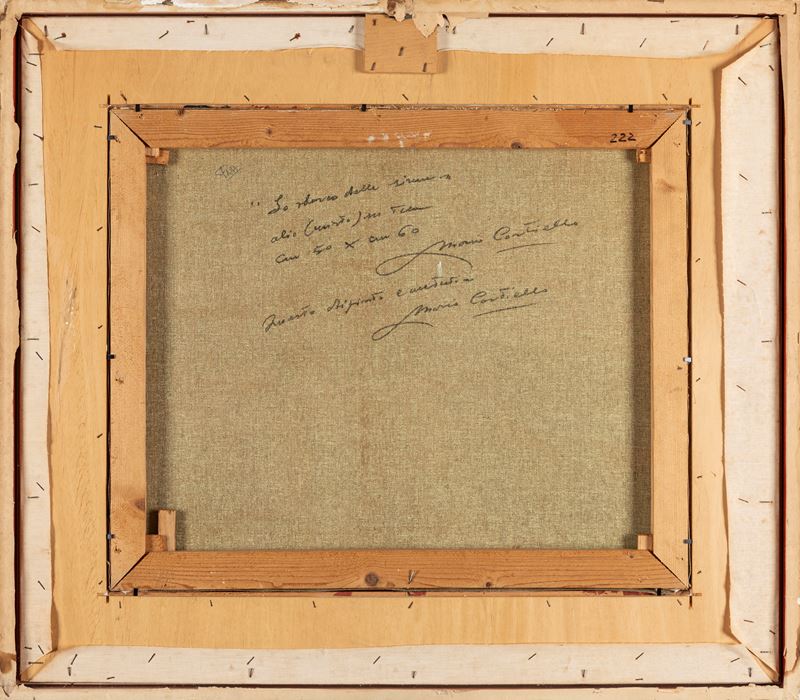 222
" Lo sbarco delle sirene "
olio (misto) su Tela
cm 50 x cm 60
Mario Cortiello
Questo dipinto e autentico
Mario Cortiello